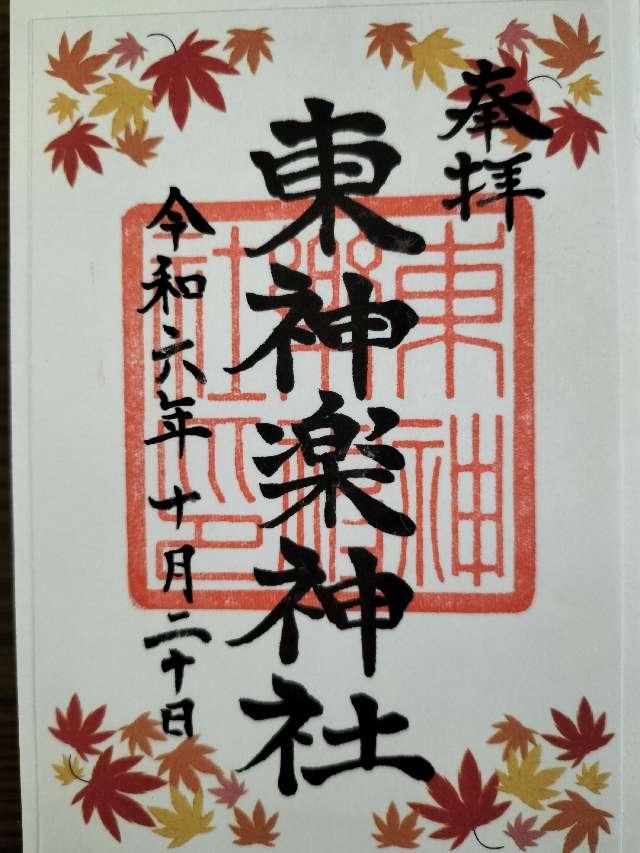 奉拝
東神楽神社
令和六年十月二十日
東神樂神社印